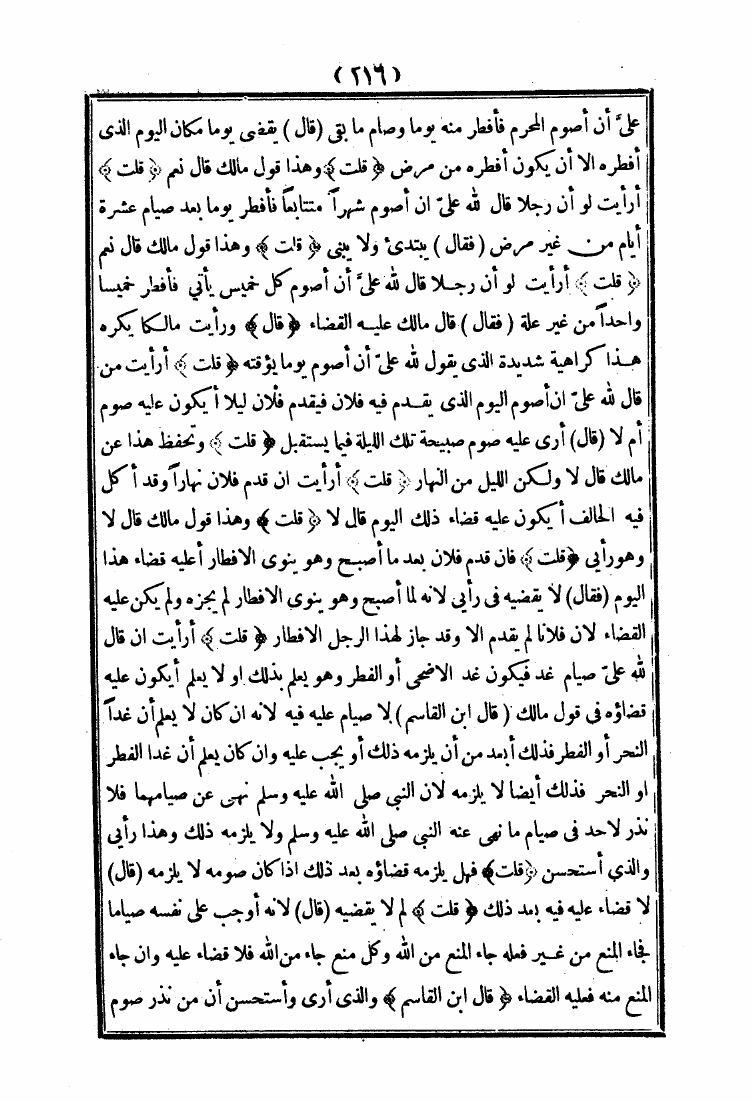 (٢١٦)
علىَّ أن أصوم المحرم فأفطر منه يوما وصام ما بقى (قال) يقضى يوما مكان اليوم الذى
أفطره الا أن يكون أفطره من مرض ﴿قلت﴾ وهذا قول مالك قال نعم ﴿قلت﴾
أرأيت لو أن رجلا قال لله علىّ ان أصوم شهراً متتابعاً فأفطر يوما بعد صيام عشرة
أيام من غير مرض (فقال) يبتدئ ولا يبنى ﴿قلت﴾ وهذا قول مالك قال نعم
﴿قلت﴾ أرأيت لو أن رجلا قال لله علىَّ أن أصوم كل خميس يأتي فأفطر خميسا
واحداً من غير علة (فقال) قال مالك عليه القضاء ﴿قال﴾ ورأيت مالكا يكره
هذا كراهية شديدة الذى يقول لله علىّ أن أصوم يوما يؤقته ﴿قلت﴾ أرأيت من
قال لله علىّ ان أصوم اليوم الذى يقدم فيه فلان فيقدم فلان ليلا أيكون عليه صوم
أم لا (قال) أرى عليه صوم صبيحة تلك الليلة فيما يستقبل ﴿قلت﴾ وتحفظ هذا عن
مالك قال لا ولكن الليل من النهار ﴿قلت﴾ أرأيت ان قدم فلان نهاراً وقد أكل
فيه الحالف أيكون عليه قضاء ذلك اليوم قال لا ﴿قلت﴾ وهذا قول مالك قال لا
وهو رأيى ﴿قلت﴾ فان قدم فلان بعد ما أصبح وهو ينوى الافطار أعليه قضاء هذا
اليوم (فقال) لا يقضيه فى رأيى لانه لما أصبح وهو ينوى الافطار لم يجزه ولم يكن عليه
القضاء لان فلانا لم يقدم الا وقد جاز لهذا الرجل الافطار ﴿قلت﴾ أرأيت ان قال
لله علىّ صيام غد فيكون غد الاضحى أو الفطر وهو يعلم بذلك او لا يعلم أيكون عليه
قضاؤه فى قول مالك (قال ابن القاسم) لا صيام عليه فيه لانه ان كان لا يعلم أن غداً
النحر أو الفطر فذلك أبعد من أن يلزمه ذلك أو يجب عليه وان كان يعلم أن غدا الفطر
او النحر فذلك أيضا لا يلزمه لان النبي صلى الله عليه وسلم نهى عن صيامهما فلا
نذر لاحد فى صيام ما نهى عنه النبي صلى الله عليه وسلم ولا يلزمه ذلك وهذا رأيى
والذي أستحسن ﴿قلت﴾ فهل يلزمه قضاؤه بعد ذلك اذا كان صومه لا يلزمه (قال)
لا قضاء عليه فيه بعد ذلك ﴿قلت﴾ لم لا يقضيه (قال) لانه أوجب على نفسه صياما
فجاء المنع من غير فعله جاء المنع من الله وكل منع جاء من الله فلا قضاء عليه وان جاء
المنع منه فعليه القضاء ﴿قال ابن القاسم﴾ والذى أرى وأستحسن أن من نذر صوم